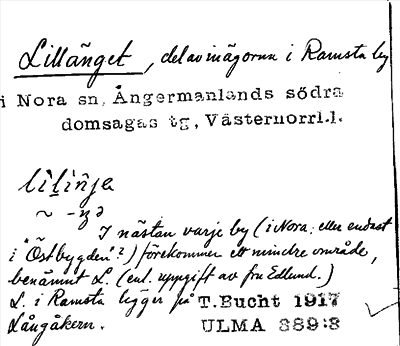 Lillänget, del av inägorna i Ramsta by
i Nora sn, Ångermanlands södra
domsagas tg, Västernorrl.l.
lìḷìn̂ja
~ -ŋə
I nästan varje by (i Nora; eller endast
i "Östbygden"?) förekommer ett mindre område,
benämnt L. (enl. uppgift av fru Edlund.)
L. i Ramsta ligger på T.Bucht 1917
Långåkern. ULMA 889:8